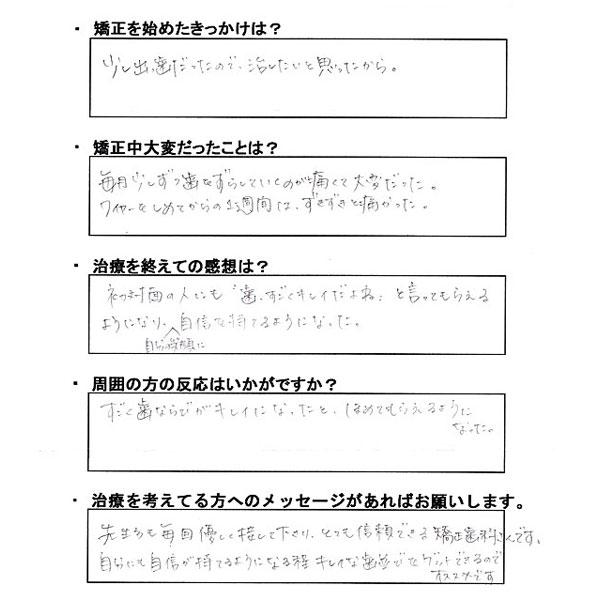 ・ 矯正を始めたきっかけは？
少し出っ歯だったので、治したいと思ったから。
・ 矯正中大変だったことは？
毎月少しずつ歯をずらしていくのが痛くて大変だった。
ワイヤーをしめてからの1週間は、ずきずきと痛かった。
・ 治療を終えての感想は？
初対面の人にも「歯、すごくキレイだよね」と言ってもらえる
ようになり、自信を持てるようになった。
自分の笑顔に
・ 周囲の方の反応はいかがですか？
すごく歯ならびがキレイになったと、ほめてもらえるように
なった。
・ 治療を考えてる方へのメッセージがあればお願いします。
先生方も毎回優しく接して下さり、とても信頼できる矯正歯科さんです。
自分にも自信が持てるようになる程キレイな歯並びをゲットできるので
オススメです